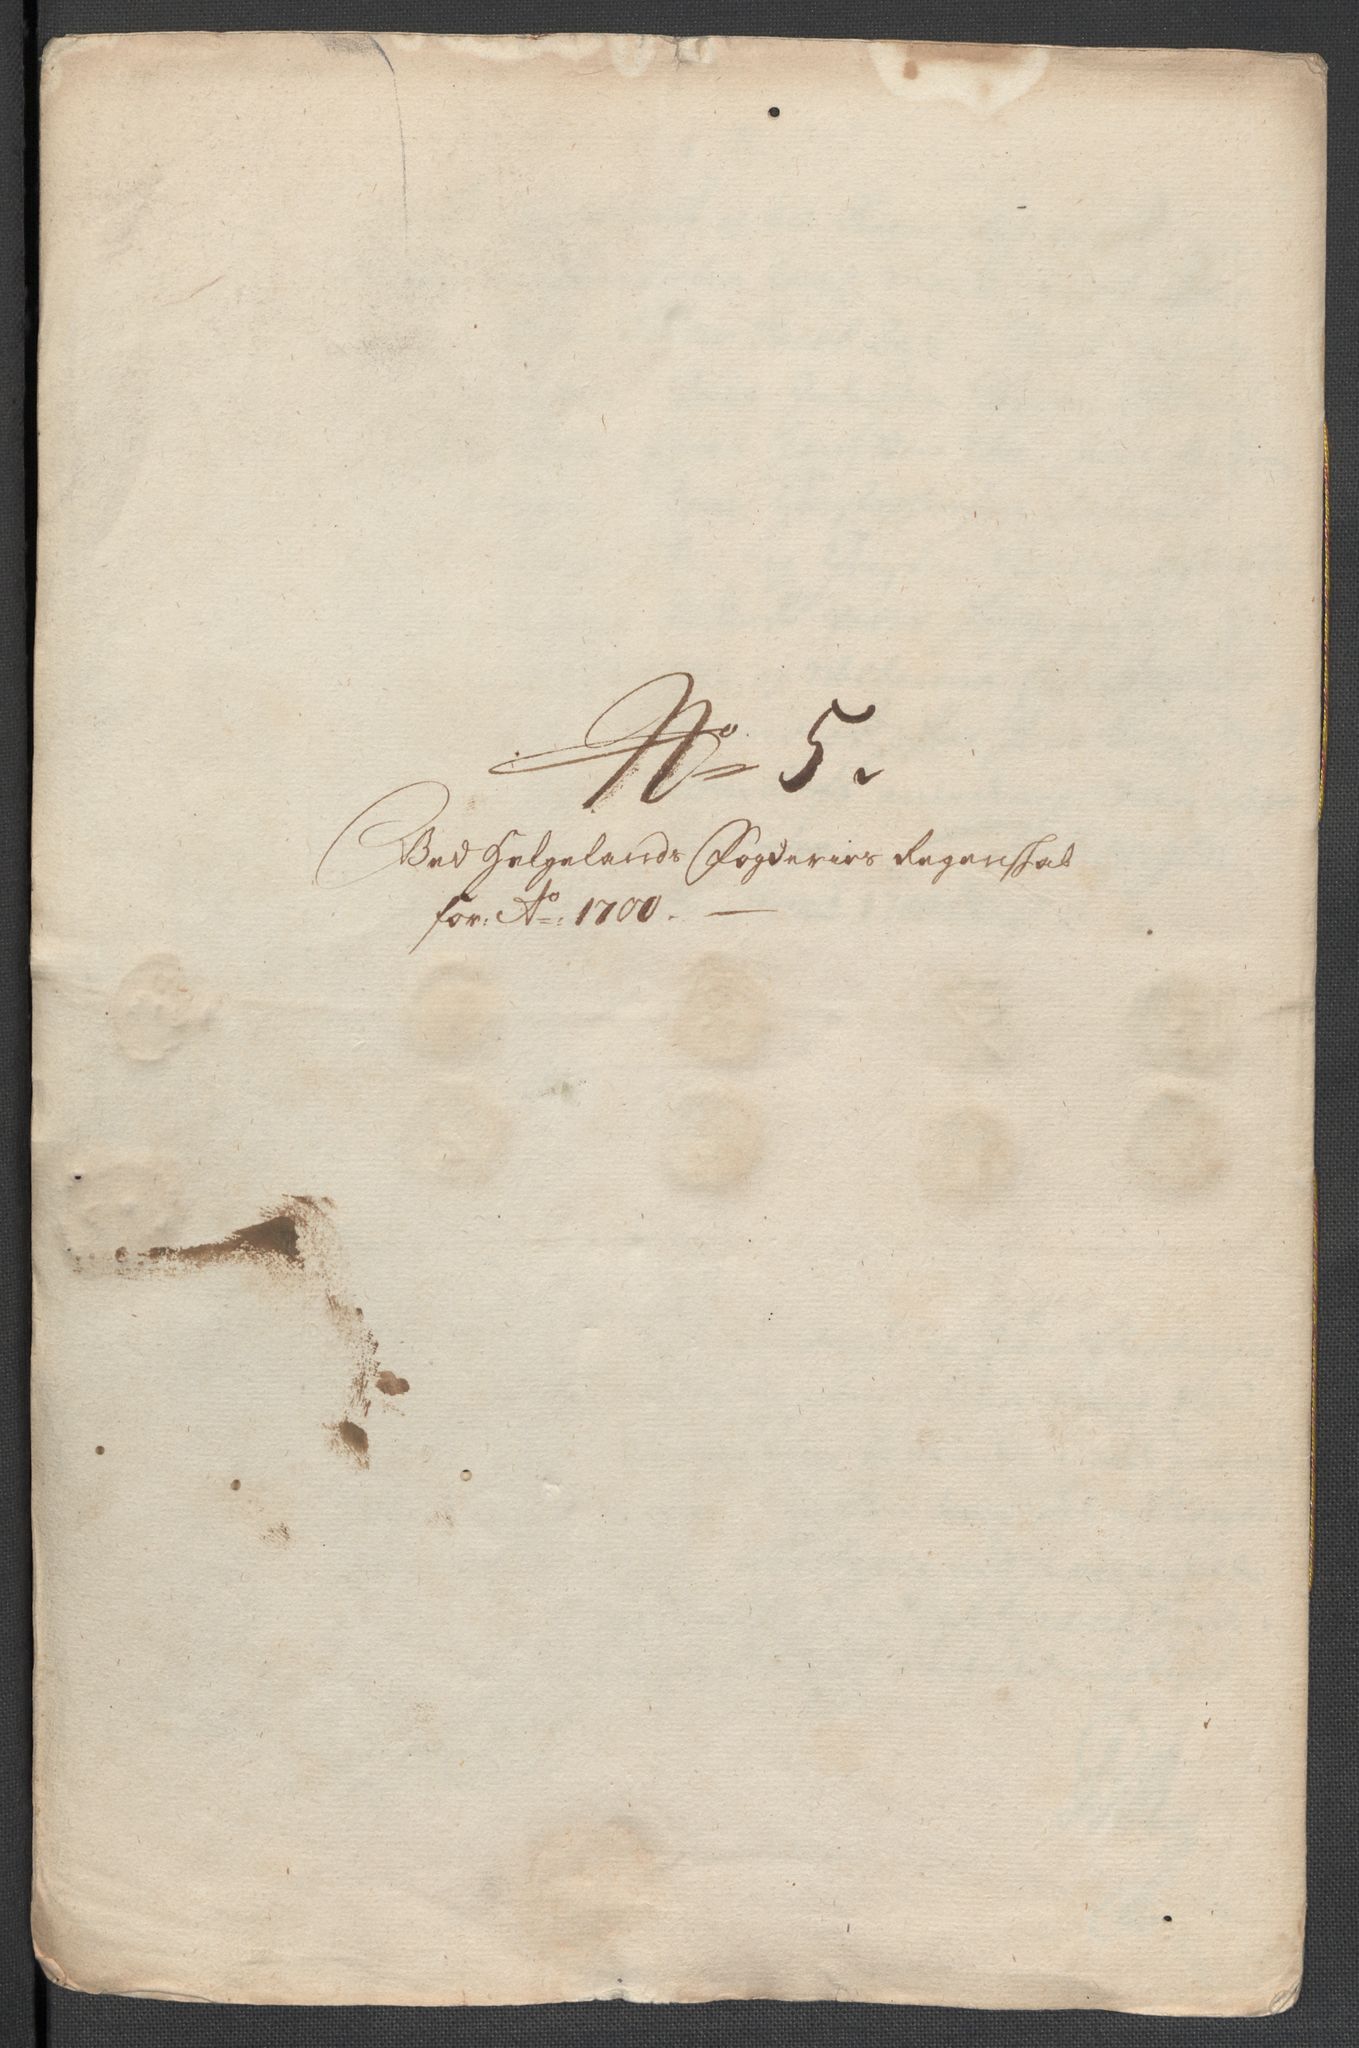 No 5.
Ved Helgelands Fogderies Regenskab
for: Ao: 1700.